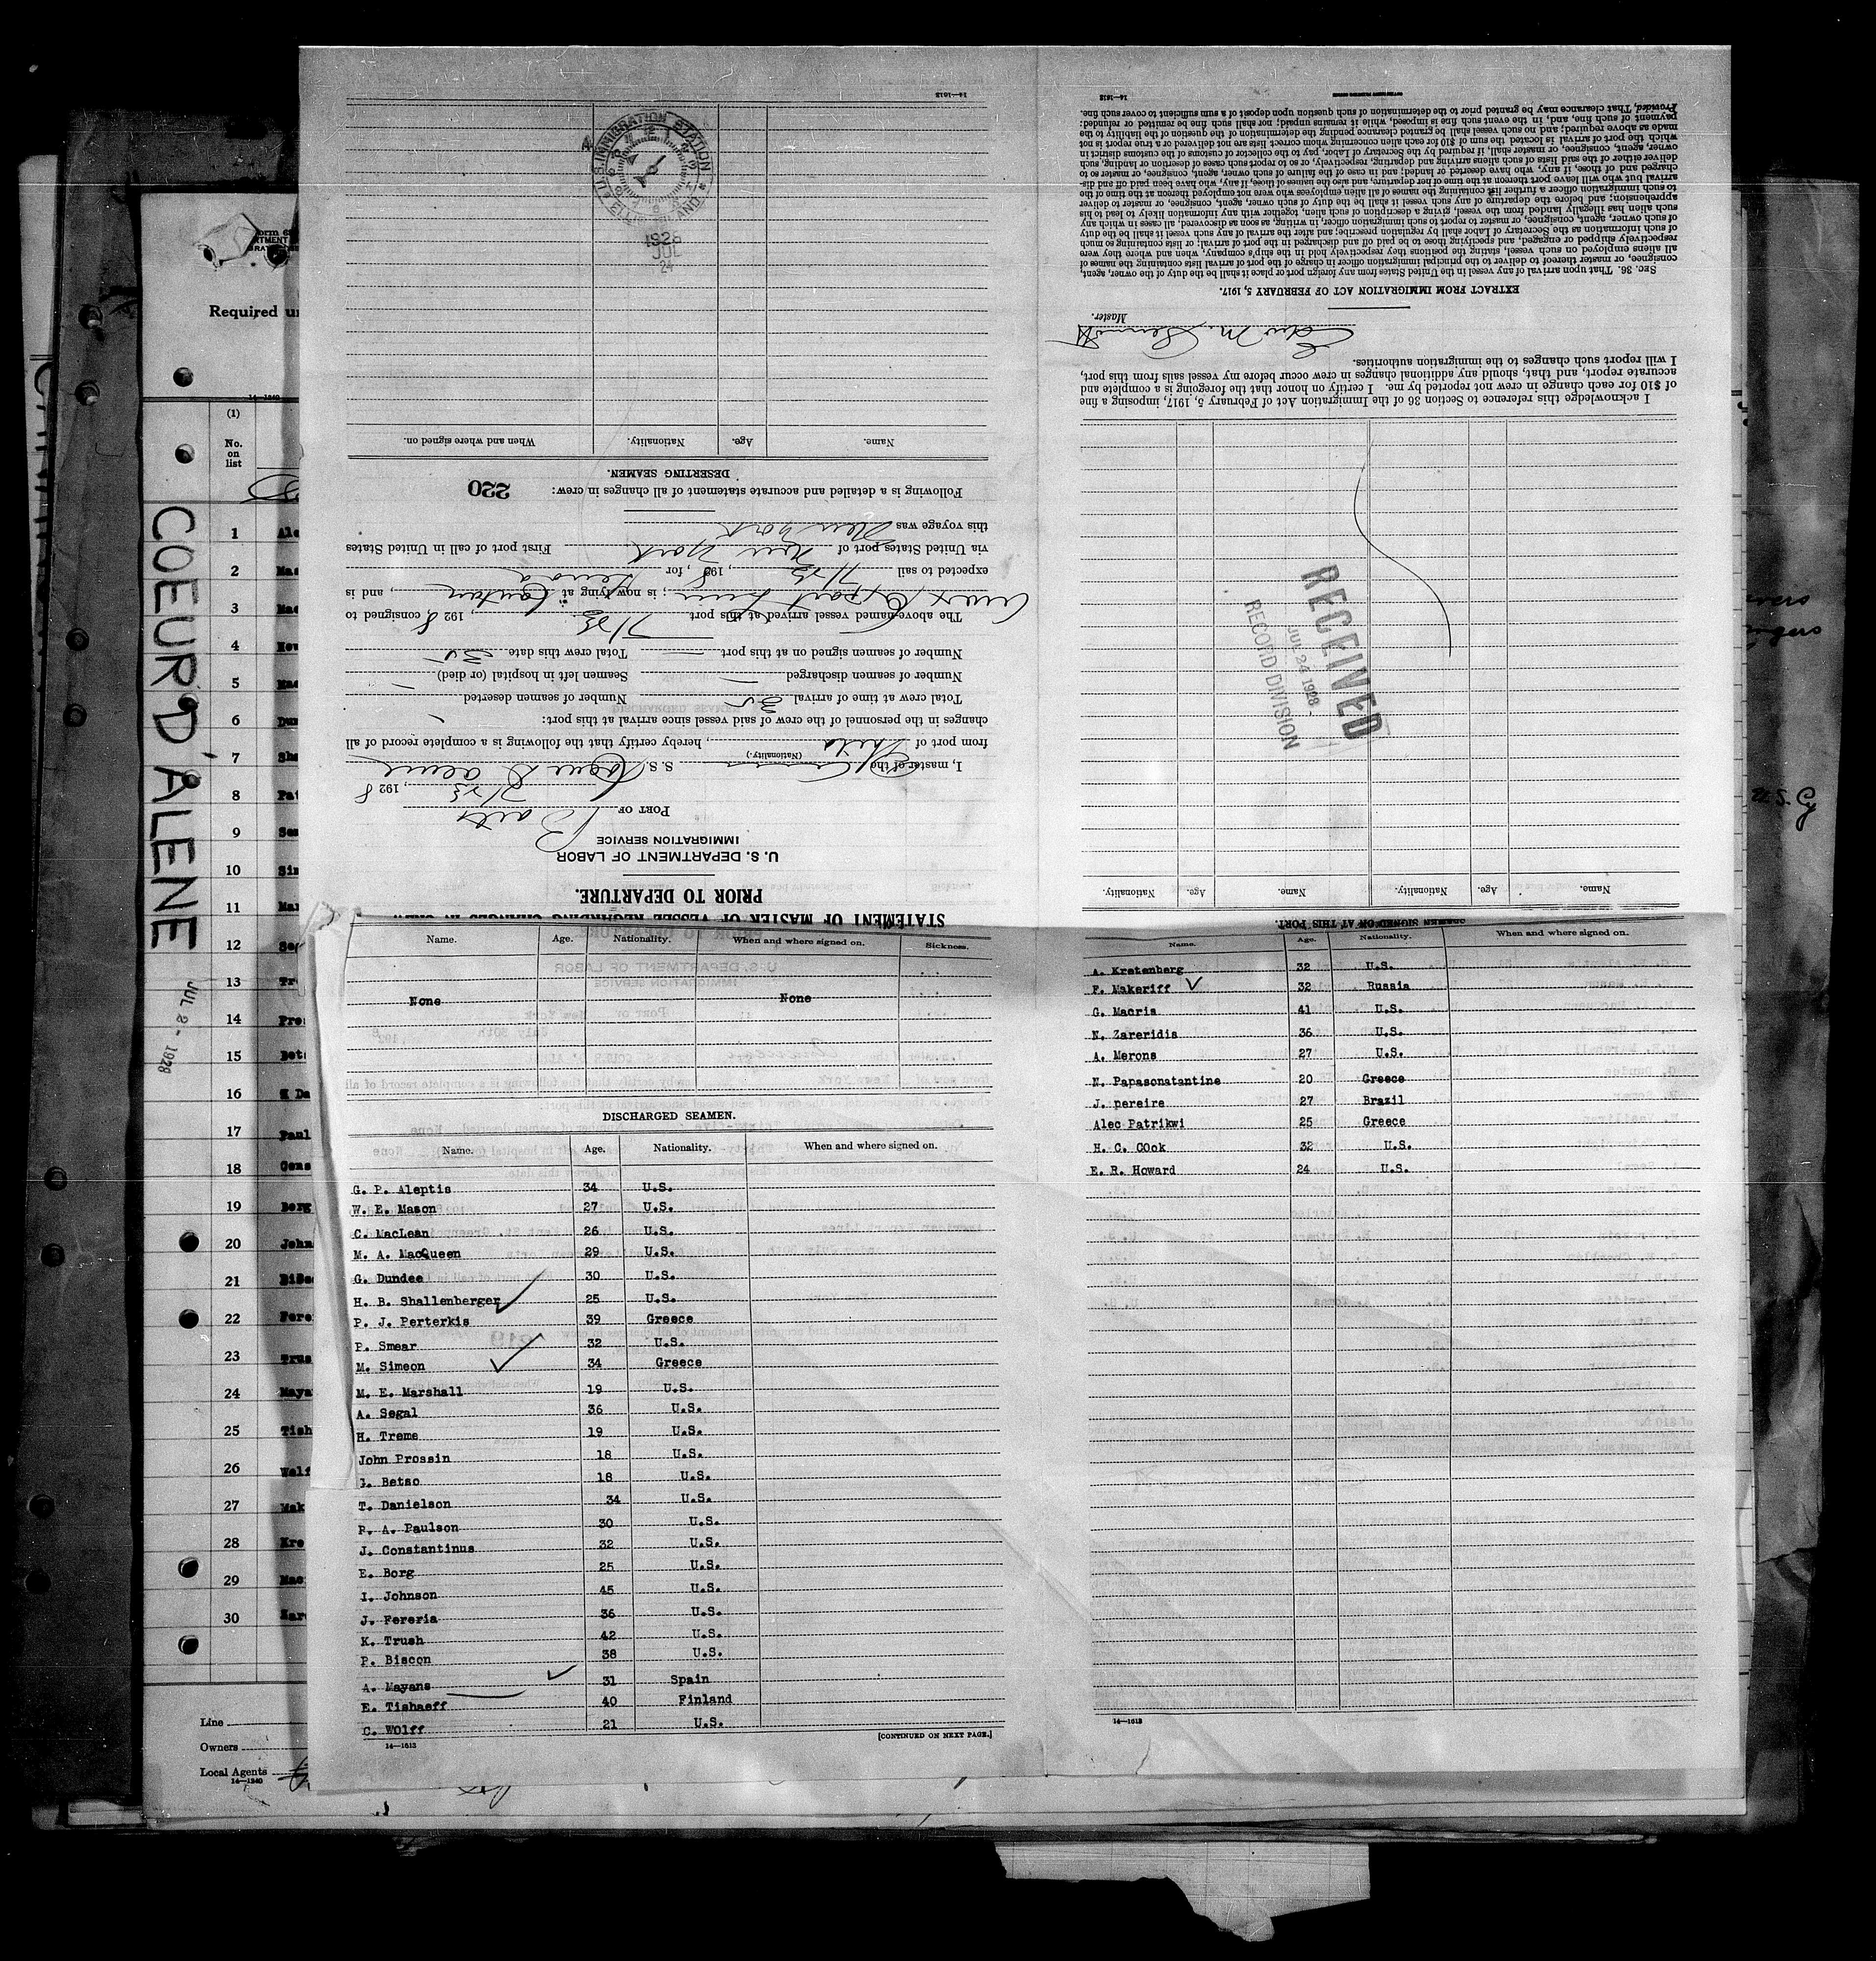 COEUR D'ALENE
JUL 2 - 1928
Required
14—1240
(1)
No.
on
list
1
2
3
4
5
6
7
8
9
10
11
12
13
14
15
16
17
18
19
20
21
22
23
24
25
26
27
28
29
30
Line
Owners
Local Agents
14—1240
STATEMENT OF MASTER OF VESSEL REGARDING CHANGES IN CREW
PRIOR TO DEPARTURE.
U. S. DEPARTMENT OF LABOR
IMMIGRATION SERVICE
PORT OF Balto
7/23, 1928
I, master of the S. S. Coeur D'Alene
(Nationality.)
from port of Phila, hereby certify that the following is a complete record of all
changes in the personnel of the crew of said vessel since arrival at this port:
Total crew at time of arrival 35 Number of seamen deserted —
Number of seamen discharged — Seamen left in hospital (or died) —
Number of seamen signed on at this port — Total crew this date 35
The above-named vessel arrived at this port 7/23, 1928 consigned to
Amer Export Lines; is now lying at Canton, and is
expected to sail 7/23, 1928, for Genoa
via United States port of New York First port of call in United States
this voyage was New York
Following is a detailed and accurate statement of all changes in crew: 220
DESERTING SEAMEN.
Name. Age. Nationality. When and where signed on.
U.S. IMMIGRATION STATION
ELLIS ISLAND
1928
JUL
24
14—1613
SEAMEN SIGNED ON AT THIS PORT.
Name. Age. Nationality. Name. Age. Nationality.
RECEIVED
JUL 24 1928
RECORD DIVISION
I acknowledge this reference to Section 36 of the Immigration Act of February 5, 1917, imposing a fine
of $10 for each change in crew not reported by me. I certify on honor that the foregoing is a complete and
accurate report, and that, should any additional changes in crew occur before my vessel sails from this port,
I will report such changes to the immigration authorities.
Master.
EXTRACT FROM IMMIGRATION ACT OF FEBRUARY 5, 1917.
SEC. 36. That upon arrival of any vessel in the United States from any foreign port or place it shall be the duty of the owner, agent,
consignee, or master thereof to deliver to the principal immigration officer in charge of the port of arrival lists containing the names of
all aliens employed on such vessel, stating the positions they respectively hold in the ship's company, when and where they were
respectively shipped or engaged, and specifying those to be paid off and discharged in the port of arrival; or lists containing so much
of such information as the Secretary of Labor shall by regulation prescribe; and after the arrival of any such vessel it shall be the duty
of such owner, agent, consignee, or master to report to such immigration officer, in writing, as soon as discovered, all cases in which any
such alien has illegally landed from the vessel, giving a description of such alien, together with any information likely to lead to his
apprehension; and before the departure of any such vessel it shall be the duty of such owner, agent, consignee, or master to deliver
to such immigration officer a further list containing the names of all alien employees who were not employed thereon at the time of the
arrival but who will leave port thereon at the time of her departure, and also the names of those, if any, who have been paid off and dis-
charged and of those, if any, who have deserted or landed; and in case of the failure of such owner, agent, consignee, or master so to
deliver either of the said lists of such aliens arriving and departing, respectively, or so to report such cases of desertion or landing, such
owner, agent, consignee, or master shall, if required by the Secretary of Labor, pay to the collector of customs of the customs district in
which the port of arrival is located the sum of $10 for each alien concerning whom correct lists are not delivered or a true report is not
made as above required; and no such vessel shall be granted clearance pending the determination of the question of the liability to the
payment of such fine, and, in the event such fine is imposed, while it remains unpaid; nor shall such fine be remitted or refunded:
Provided, That clearance may be granted prior to the determination of such question upon deposit of a sum sufficient to cover such fine.
14—1613
Name. Age. Nationality. When and where signed on. Sickness.
None None
DISCHARGED SEAMEN.
Name. Age. Nationality. When and where signed on.
G. P. Aleptis 34 U.S.
W. E. Mason 27 U.S.
C. MacLean 26 U.S.
M. A. MacQueen 29 U.S.
G. Dundee 30 U.S.
H. B. Shallenberger 25 U.S.
P. J. Perterkis 39 Greece
P. Smear 32 U.S.
M. Simeon 34 Greece
M. E. Marshall 19 U.S.
A. Segal 36 U.S.
H. Treme 19 U.S.
John Prossin 18 U.S.
G. Betso 18 U.S.
T. Danielson 34 U.S.
P. A. Paulson 30 U.S.
J. Constantinus 32 U.S.
E. Borg 25 U.S.
I. Johnson 45 U.S.
J. Fereria 36 U.S.
K. Trush 42 U.S.
P. Biscon 38 U.S.
A. Mayans 31 Spain
E. Tishaeff 40 Finland
C. Wolff 21 U.S.
14—1613
[CONTINUED ON NEXT PAGE.]
Name. Age. Nationality. When and where signed on.
A. Kretenberg 32 U.S.
F. Makeriff 32 Russia
G. Macris 41 U.S.
N. Zareridis 36 U.S.
A. Merons 27 U.S.
N. Papasonatantine 20 Greece
J. pereire 27 Brazil
Alec Patrikwi 25 Greece
H. C. COok 32 U.S.
E. R. Howard 24 U.S.
14—1613